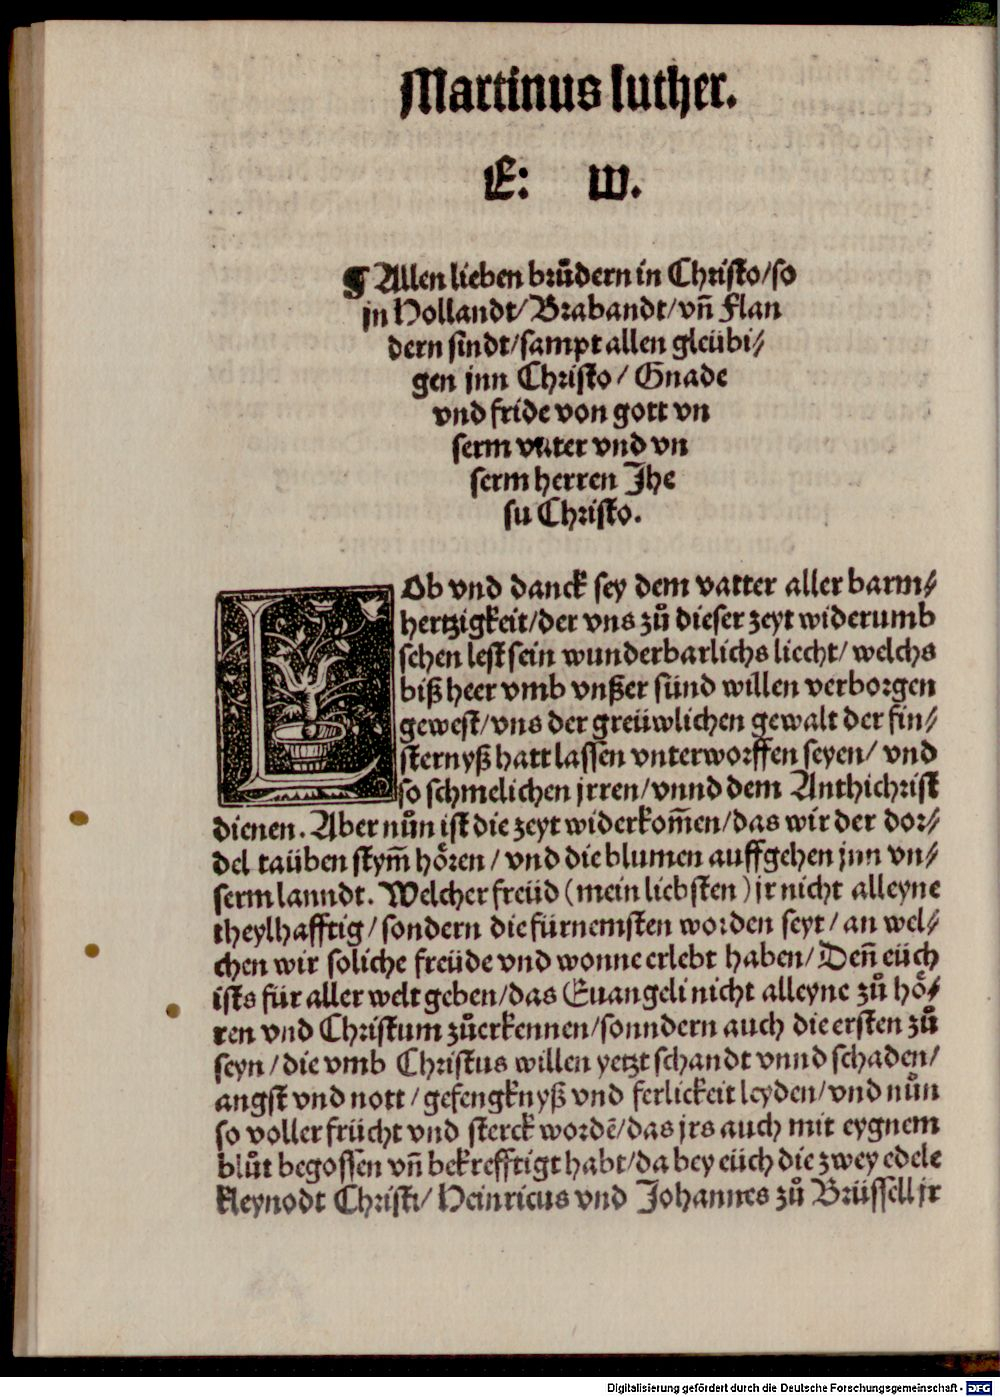 Martinus luther.
E: W.
¶ Allen lieben brůdern in Christo/so
jn Hollandt/Brabandt/vñ Flan
dern sindt/sampt allen gleübi⸗
gen jnn Christo/ Gnade
vnd fride von gott vn
serm vater vnd vn
serm herren Jhe
su Christo.
LOb vnd danck sey dem vatter aller barm⸗
hertzigkeit/der vns zů dieser zeyt widerumb
sehen lest sein wunderbarlichs liecht/ welchs
biß heer vmb vnßer sünd willen verborgen
gewest/vns der greüwlichen gewalt der fin⸗
sternyß hatt lassen vnterworffen seyen/ vnd
so schmelichen jrren/vnnd dem Anthichrist
dienen. Aber nůn ist die zeyt widerkom̃en/das wir der dor⸗
del taüben stym̃ hören / vnd die blumen auffgehen jnn vn⸗
serm lanndt. Welcher freüd (mein liebsten) jr nicht alleyne
theylhafftig/sondern die fürnemsten worden seyt/an wel⸗
chen wir soliche freüde vnd wonne erlebt haben/Deñ eüch
ists für aller welt geben/das Euangeli nicht alleyne zů hö⸗
ren vnd Christum zůerkennen/sonndern auch die ersten zů
seyn/die vmb Christus willen yetzt schandt vnnd schaden/
angst vnd nott/gefengknyß vnd ferlickeit leyden/vnd nůn
so voller frücht vnd sterck wordẽ/das jrs auch mit eygnem
blůt begossen vñ bekrefftigt habt/da bey eüch die zwey edele
kleynodt Christi/Heinricus vnd Johannes zů Brüssell jr
Digitalisierung gefördert durch die Deutsche Forschungsgemeinschaft - DFG